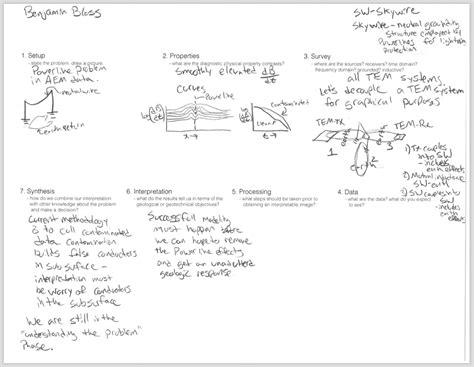 Benjamin Bloss
SW-Skywire
Skywire - neutral grounding
structure employed by
Powerlines for lightning
protection
1. Setup
- state the problem, draw a picture
Powerline Problem
in AEM data
neutral wire
earth return
2. Properties
- what are the diagnostic physical property contrasts?
Smoothly elevated dB/dt
curves
Powerline
log(dB/dt)
x→
contaminated
clean
t→
3. Survey
- what are the sources? receivers? time domain?
frequency domain? grounded? inductive?
all TEM systems
Lets decouple a TEM system
for graphical purposes
TEM-TX
TEM-Rx
1
2
3
1) Tx couples
into SW
- includes
earth effects
2) Mutual inductance
SW-earth
3) SW couples to
- includes
earth
effects
7. Synthesis
- how do we combine our interpretation
with other knowledge about the problem
and make a decision?
Current methodology
is to cull contaminated
data. Contamination
builds false conductors
in subsurface -
interpretation must
be worry of conductors
in the subsurface
We are still in the
"understanding the problem"
Phase.
6. Interpretation
- what do the results tell us in terms of the
geological or geotechnical objectives?
Successful modeling
must happen before
we can hope to remove
the Powerline effects
and get an unadultered
geologic response
5. Processing
- what steps should be taken prior to
obtaining an interpretable image?
4. Data
- what are the data? what do you expect
to see?